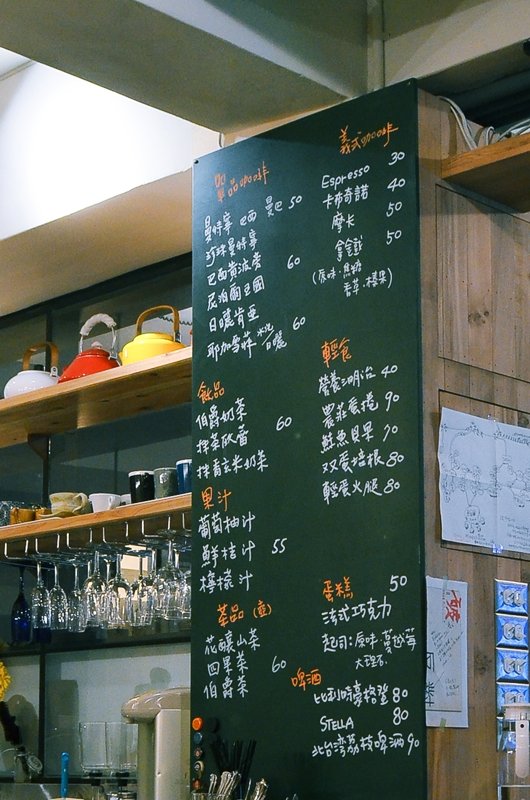 單品咖啡
曼特寧 巴西 曼巴 50
珍珠曼特寧
巴西黃波旁 60
尼泊爾
日曬肯亞
耶加雪菲 水洗 日曬 60
飲品
伯爵奶茶
抹茶欧蕾 60
抹香玄米奶茶
果汁
葡萄柚汁
鮮桔汁 55
檸檬汁
茶品(壺)
花釀山茶
四果茶 60
伯爵茶
義式咖啡
Espresso 30
卡布奇諾 40
摩卡 50
拿鐵 50
(原味.焦糖
香草.榛果)
輕食
營養三明治 40
農莊蛋捲 90
鮪魚貝果 70
双蛋培根 80
輕蛋火腿 80
蛋糕 50
法式巧克力
起司:原味.蔓越莓
大理石.
啤酒
比利時豪格登 80
STELLA 80
北台湾荔枝啤酒 90